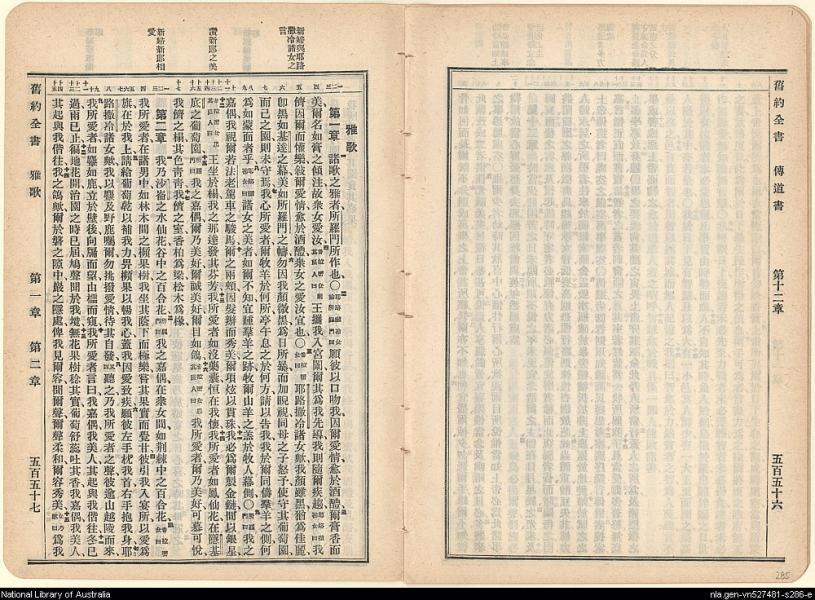 舊約全書 傳道書 第十二章 五百五十六
新婦與耶路
撒冷諸女之
言
新郎之美
新婦新郎相
愛
雅歌
第一章 諸歌之雅者所羅門所作也 願彼以口吻我因爾愛情愈於酒醴爾膏香而
美爾名如膏之傾注故衆女愛汝 王攜我入宮闈爾其爲我先導我則隨爾疾趨 我
儕因爾而懽樂敍爾愛情愈於酒醴衆女之愛汝宜也 耶路撒冷諸女歟我顏雖黑猶爲佳麗
卽黑如基達之幕美如所羅門之幃勿因我顏微黑爲日所暴而加睨視同母之子怒予使守其葡萄園
而己之園則未守焉我心所愛者爾牧羊於何所亭午息之於何方請以告我我於爾同儔羣羊之側何
爲如蒙面者乎 諸女之美者如爾不知宜踵羣羊之跡牧爾山羊之羔於牧人幕側 我之
嘉偶我視爾若法老駕車之駿馬爾之兩頰因髮辮而秀美爾項炫以貫珠我必爲爾製金鏈間以銀星
王坐於榻我之那達發其芬芳我所愛者如沒藥囊恒在我懷我所愛者如鳳仙花在隱基
底之葡萄園 我之嘉偶爾乃美好爾誠美好爾目如鴿 我所愛者爾乃美好可慕可悅
我儕之榻其色靑靑我儕之室香柏爲梁松木爲椽
第二章 我乃沙崙之水仙花谷中之百合花 我之嘉偶在衆女間如荆棘中之百合花
我所愛者在諸男中如林木間之蘋果樹我坐其蔭下而極樂嘗其果實而覺甘彼引我入宴所以愛爲
旗在於我上請給葡萄乾以補我力畀蘋果以暢我心蓋我因愛致疾願彼左手枕我首右手抱我身耶
路撒冷諸女歟我以麞及野鹿囑爾勿挑撥愛情待其自發 聽之乃我所愛者之聲彼逾山越陵而來
我所愛者如麞如鹿立於壁後向牖而望由櫺而窺我所愛者言曰我嘉偶我美人其起與我偕往冬已
過雨已止徧地花開治園之時已屆鳩聲聞於我境無花果樹稔其實葡萄舒蕊吐其香我嘉偶我美人
其起與我偕往我之鴿歟爾於磐之隙中巖之隱處俾我見爾容聞爾聲爾聲柔和爾容秀美 爲我
舊約全書 雅歌 第一章 第二章 五百五十七
285
National Library of Australia
nla.gen-vn527481-s286-e